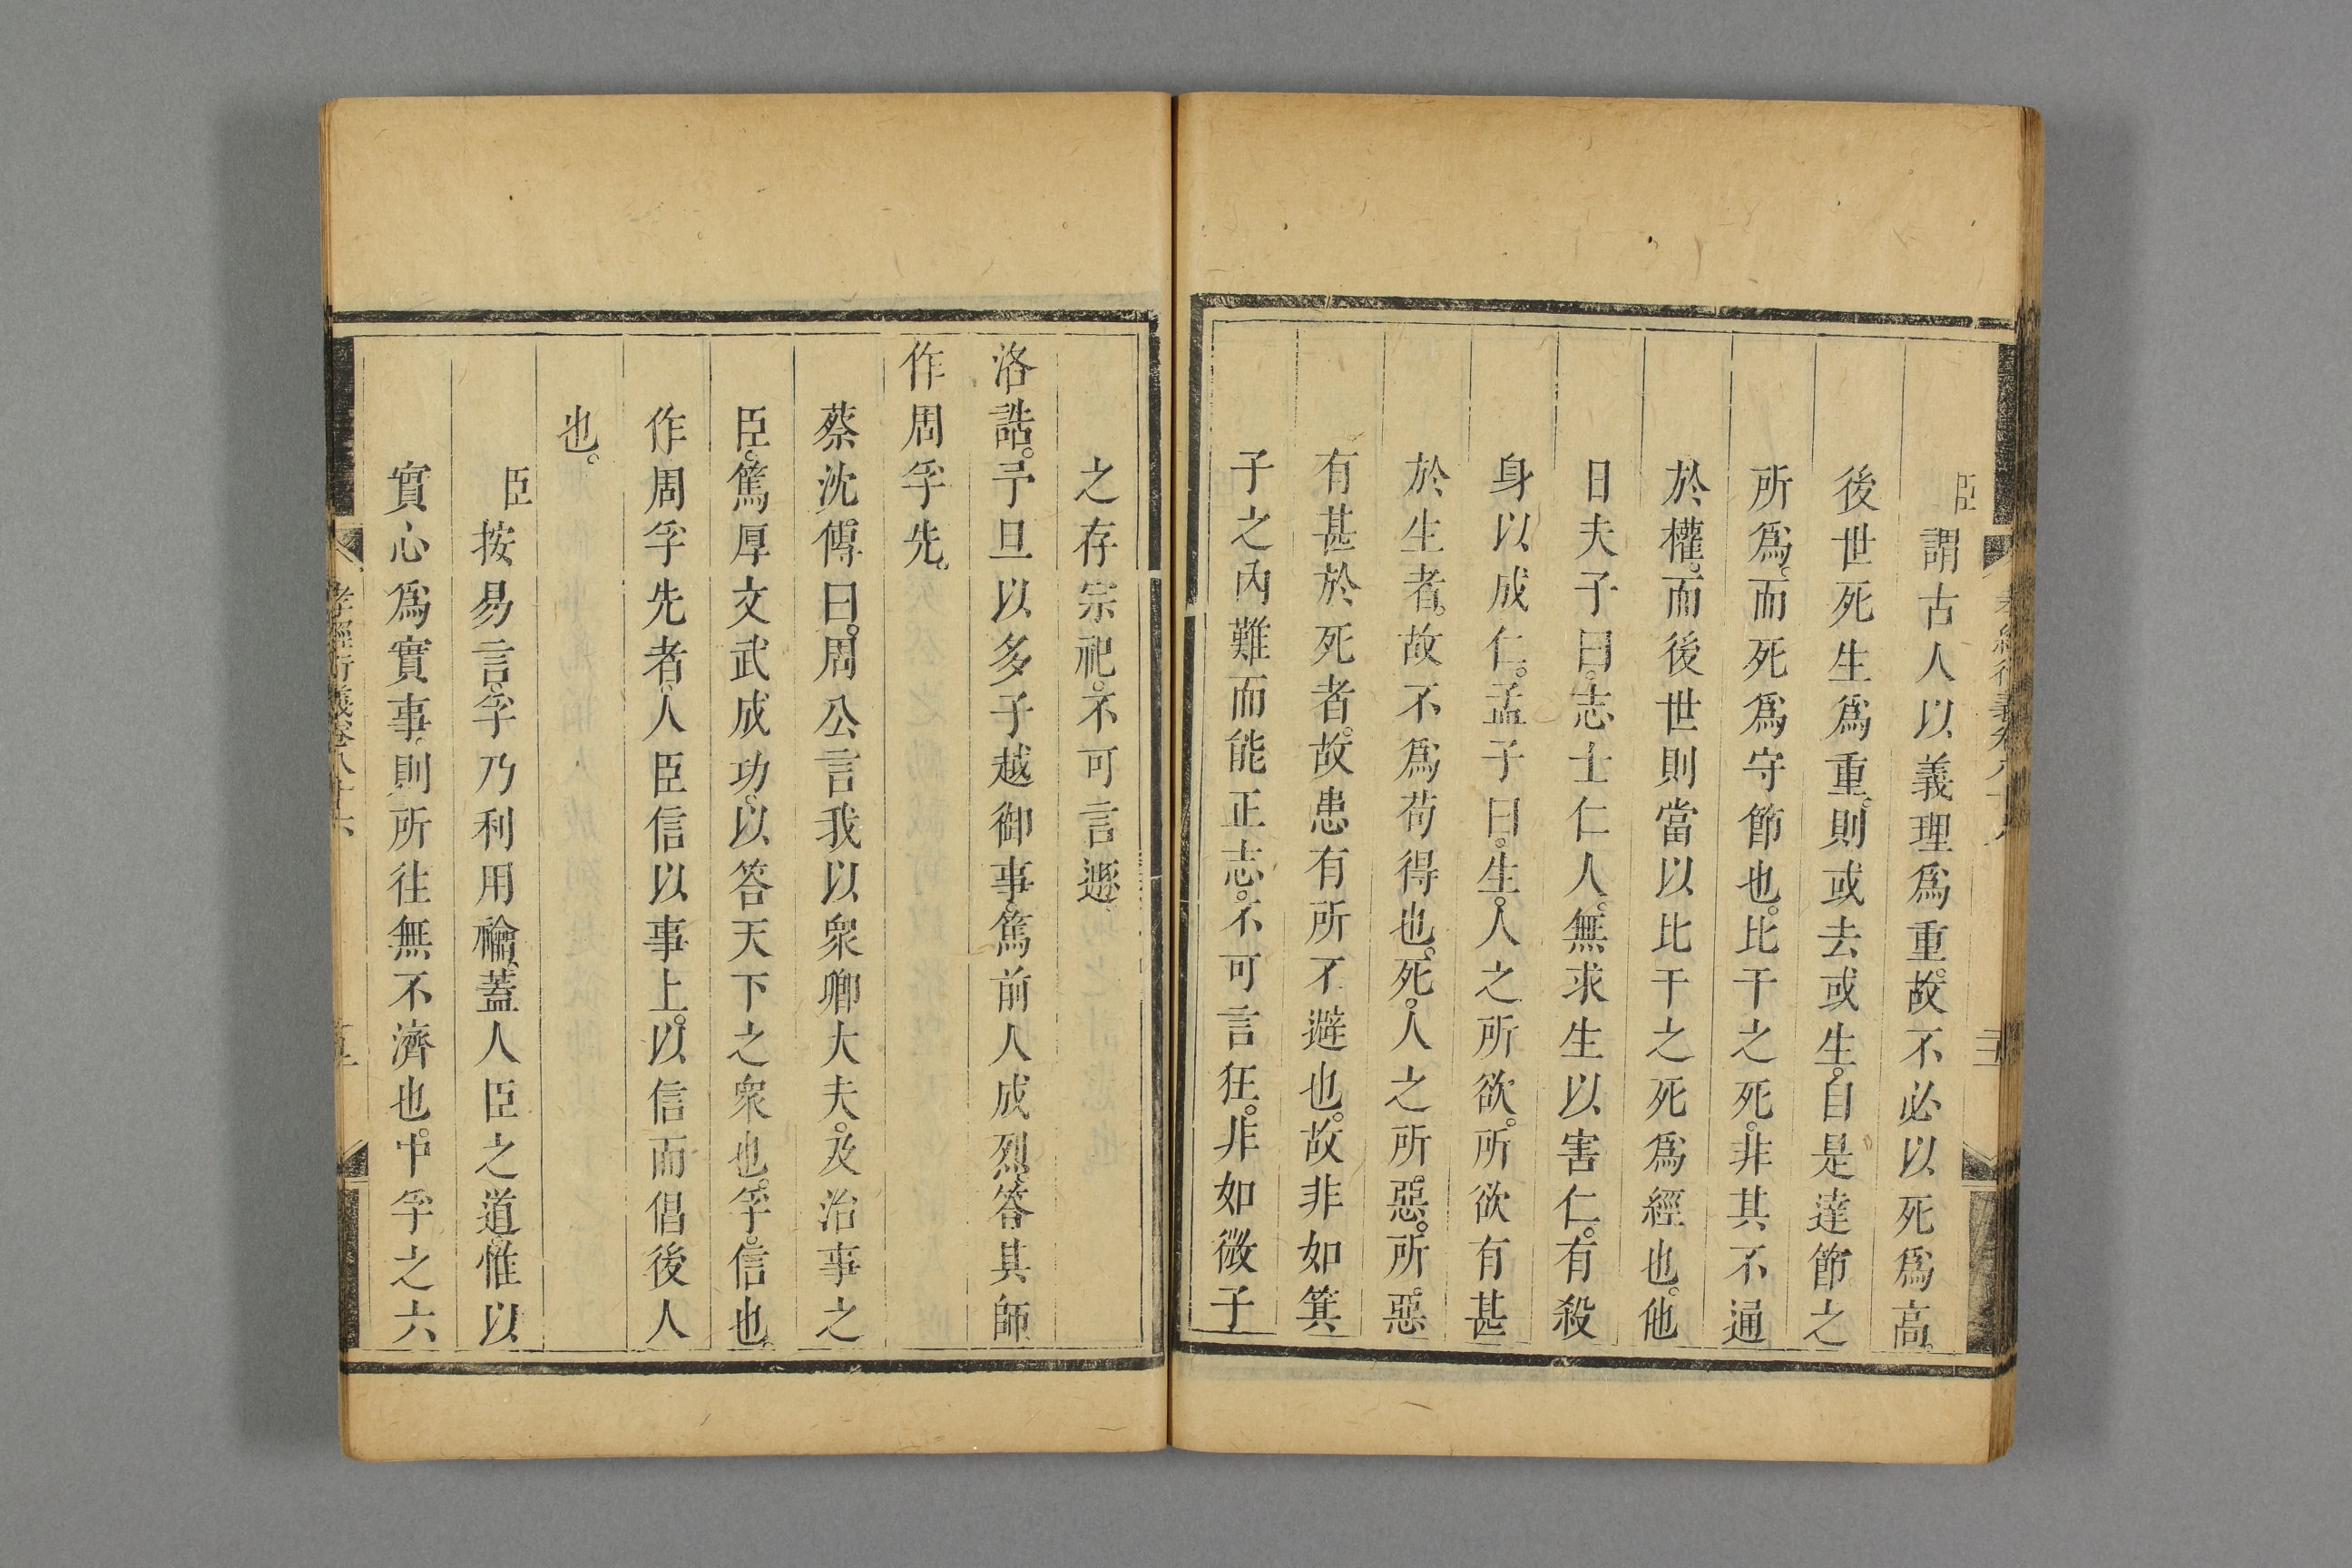 臣謂古人以義理爲重。故不必以死爲高。
後世死生爲重。則或去或生。自是達節之
所爲。而死爲守節也。比干之死。非其不通
於權。而後世則當以比干之死爲經也。他
日夫子曰。志士仁人。無求生以害仁。有殺
身以成仁。孟子曰。生。人之所欲。所欲有甚
於生者。故不爲苟得也。死。人之所。惡。所。惡
有甚於死者。故患有所不避也。故非如箕
子之內難而能正志。不可言狂。非如微子
之存宗祀。不可言遯
洛誥。予旦以多子越御事。篤前人成烈。答其師
作周孚先。
蔡沈傳曰。周公言我以衆卿大夫。及治事之
臣。篤厚文武成功。以答天下之衆也。孚。信也。
作周孚先者。人臣信以事上。以信而倡後人
也。
臣按易言。孚乃利用禴。蓋人臣之道。惟以
實心爲實事。則所往無不濟也。中孚之六
孝經衍義卷八十六